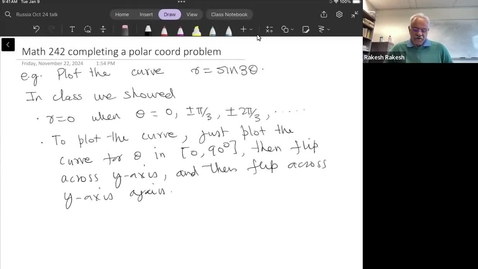 9:41 AM Tue Jan 9
Russia Oct 24 talk
Home
Insert
Draw
View
Class Notebook
Math 242 completing a polar coord problem
Friday, November 22, 2024 5:54 PM
e.g. Plot the curve r = sin3θ.
In class we showed
• r=0 when θ = 0, ±π/3, ±2π/3, ·····
• To plot the curve, just plot the
curve for θ in [0, 90°], then flip
across y-axis, and then flip across
y-axis again.
Rakesh Rakesh